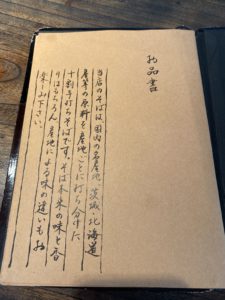 お品書
当店のそばは、国内の名産地、茨城・北海道
産等の原料を産地ごとに打ち分けた
十割手打ちそばです。そば本来の味と香
りはもちろん、産地による味の違いもお
楽しみ下さい。